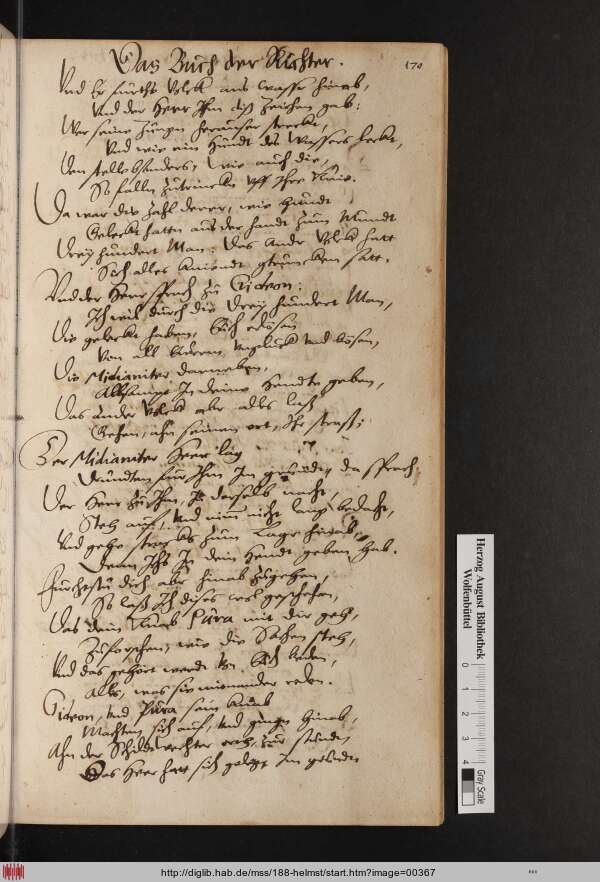 Das Buch der Richter.
170
Und Er fürths Volck ans Wasser hinab,
Und der Herr Ihm diß Zeichen gab:
Wer seine Zungen herausser streckt,
Und wie ein Hundt des Wassers leckt,
Den stell besonders, wie auch die,
So fallen zutrincken uff Ihre Knie.
Da war die Zahl derer, wie Hundt
Geleckt hatte aus der Handt zum Mundt
Drey hundert Man: Das Ander Volck hatt
Sich alles kniendt getruncken satt.
Und der Herr sprach zu Gideon:
Ich wil durch die Drey hundert Man,
Die geleckt haben, Euch erlösen
Von all Unglück und bösen,
Die Midianiter darneben,
Allsampt In deine Hendte geben,
Das ander Volck aber alles laß
Gehen, ahn seinen ort, Ihr straß:
Der Midianiter Heer lag
Drundten für Ihm Im grundt, da sprach
Der Herr zu Ihm, In derselb nacht,
Steh auff, und nim nicht lang bedacht,
Und gehe stracks zum Lager hinab,
Denn Ichs In dein Handt geben hab.
Fürchtstu dich aber hinab zugehen,
So laß Ich dises wol geschehen,
Das dein Knab Pura mit dir geh,
Zuforschen, wie die Sachen steh,
Und das gehört werde von Euch beiden,
Alls, was sie mitnander reden.
Gideon, und Pura sein Knab
Machten sich auf, und gingen hinab,
Ahn der Schildwechter orth, zur stundt,
Das Heer hatt sich gelegt Im grundt
Herzog August Bibliothek
Wolfenbüttel
0 1 2 3 4
Gray Scale
http://diglib.hab.de/mss/188-helmst/start.htm?image=00367